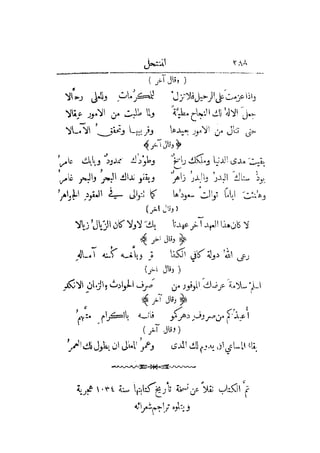 ٢٨٨ المنتحل
( وقال آخر )
واذا عزمت على الرحيل فلا تزل للمكرمات وللعلى رحالا
جعل الاله لك النجاح مطية ولما طلبت من الامور عقالا
حتى تنال من الامور جيدها وقريبها وتحقق الآمالا
﴿ وقال آخر ﴾
بقيت مدى الدنيا وملكك راسخ وطودك ممدود وبابك عامر
يود سناك البدر والبدر زاهر ويقفو نداك البحر والبحر غامر
وهنئت اياما توالت سعودها كما تتوالى في العقود الجواهر
( وقال آخر )
لا كان هذا العهد آخر عهدنا بك لا ولا كان الزيال زيالا
﴿ وقال آخر ﴾
رعى الله دولة كافي الكفاة وبلغه كنه آماله
( وقال آخر )
اسلم سلامة عرضك الموفور من صرف الحوادث والزمان الانكد
﴿ وقال آخر ﴾
أعيذكم من صروف دهركمو فانه بالكرام متهم
( وقال آخر )
بقاء المساعي ان يدوم لك المدى وعمر المعالي ان يطول بك العمر
تم الكتاب نقلا عن نسخة تأريخ كتابتها سنة ١٠٣٤ هجرية
ويتلوه تراجم شعرائه